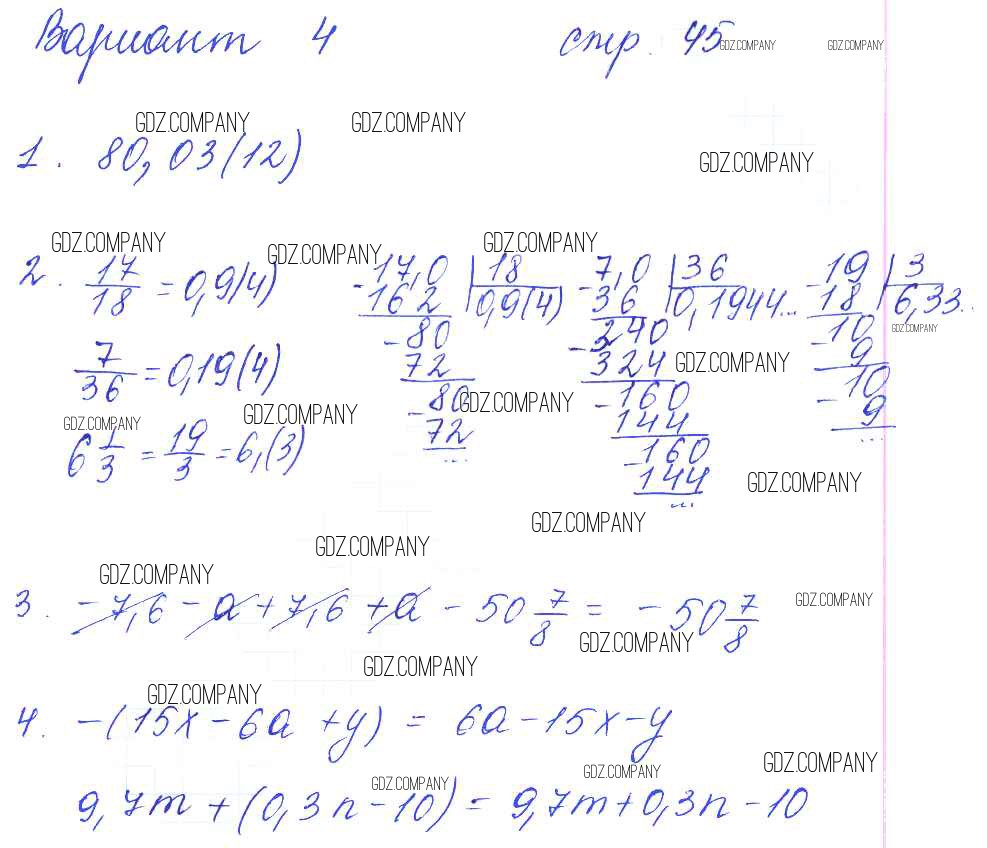 Вариант 4 стр. 45
GDZ.COMPANY GDZ.COMPANY
GDZ.COMPANY GDZ.COMPANY
1. 80,03(12)
GDZ.COMPANY
GDZ.COMPANY GDZ.COMPANY GDZ.COMPANY
2. 17/18 = 0,9(4)
-17,0 | 18
16 2 | 0,9(4)
-80
72
-80
72
...
-7,0 | 36
36 | 0,1944...
-340
324
-160
144
-160
144
...
-19 | 3
18 | 6,33..
-10
9
-10
9
...
GDZ.COMPANY
7/36 = 0,19(4)
GDZ.COMPANY
GDZ.COMPANY GDZ.COMPANY GDZ.COMPANY
6 1/3 = 19/3 = 6,(3)
GDZ.COMPANY
GDZ.COMPANY
GDZ.COMPANY
GDZ.COMPANY
3. -7,6 - a + 7,6 + a - 50 7/8 = - 50 7/8
GDZ.COMPANY
GDZ.COMPANY
GDZ.COMPANY
GDZ.COMPANY
4. -(15x - 6a + y) = 6a - 15x - y
GDZ.COMPANY GDZ.COMPANY GDZ.COMPANY
9,7m + (0,3n - 10) = 9,7m + 0,3n - 10